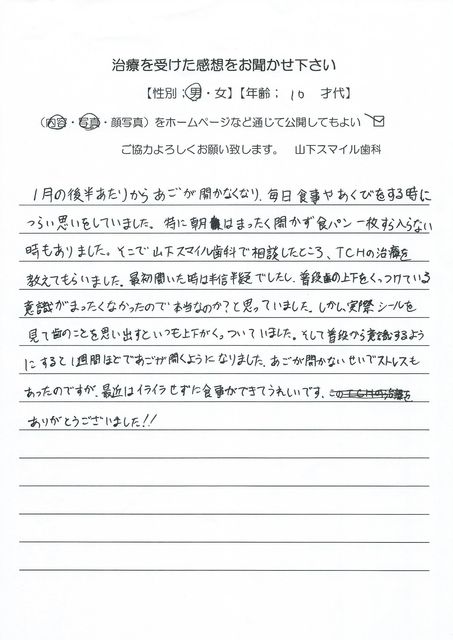 治療を受けた感想をお聞かせ下さい
【性別；男・女】【年齢； 10 才代】
（内容・写真・顔写真）をホームページなど通じて公開してもよい
ご協力よろしくお願い致します。 山下スマイル歯科
1月の後半あたりからあごが開かなくなり、毎日食事やあくびをする時に
つらい思いをしていました。特に朝はまったく開かず食パン一枚すら入らない
時もありました。そこで山下スマイル歯科で相談したところ、TCHの治療を
教えてもらいました。最初聞いた時は半信半疑でしたし、普段歯の上下をくっつけている
意識がまったくなかったので本当なのか？と思っていました。しかし、実際シールを
見て歯のことを思い出すといつも上下がくっついていました。そして普段から意識するよう
にすると1週間ほどであごが開くようになりました。あごが開かないせいでストレスも
あったのですが、最近はイライラせずに食事ができてうれしいです。このTCHの治療を
ありがとうございました!!